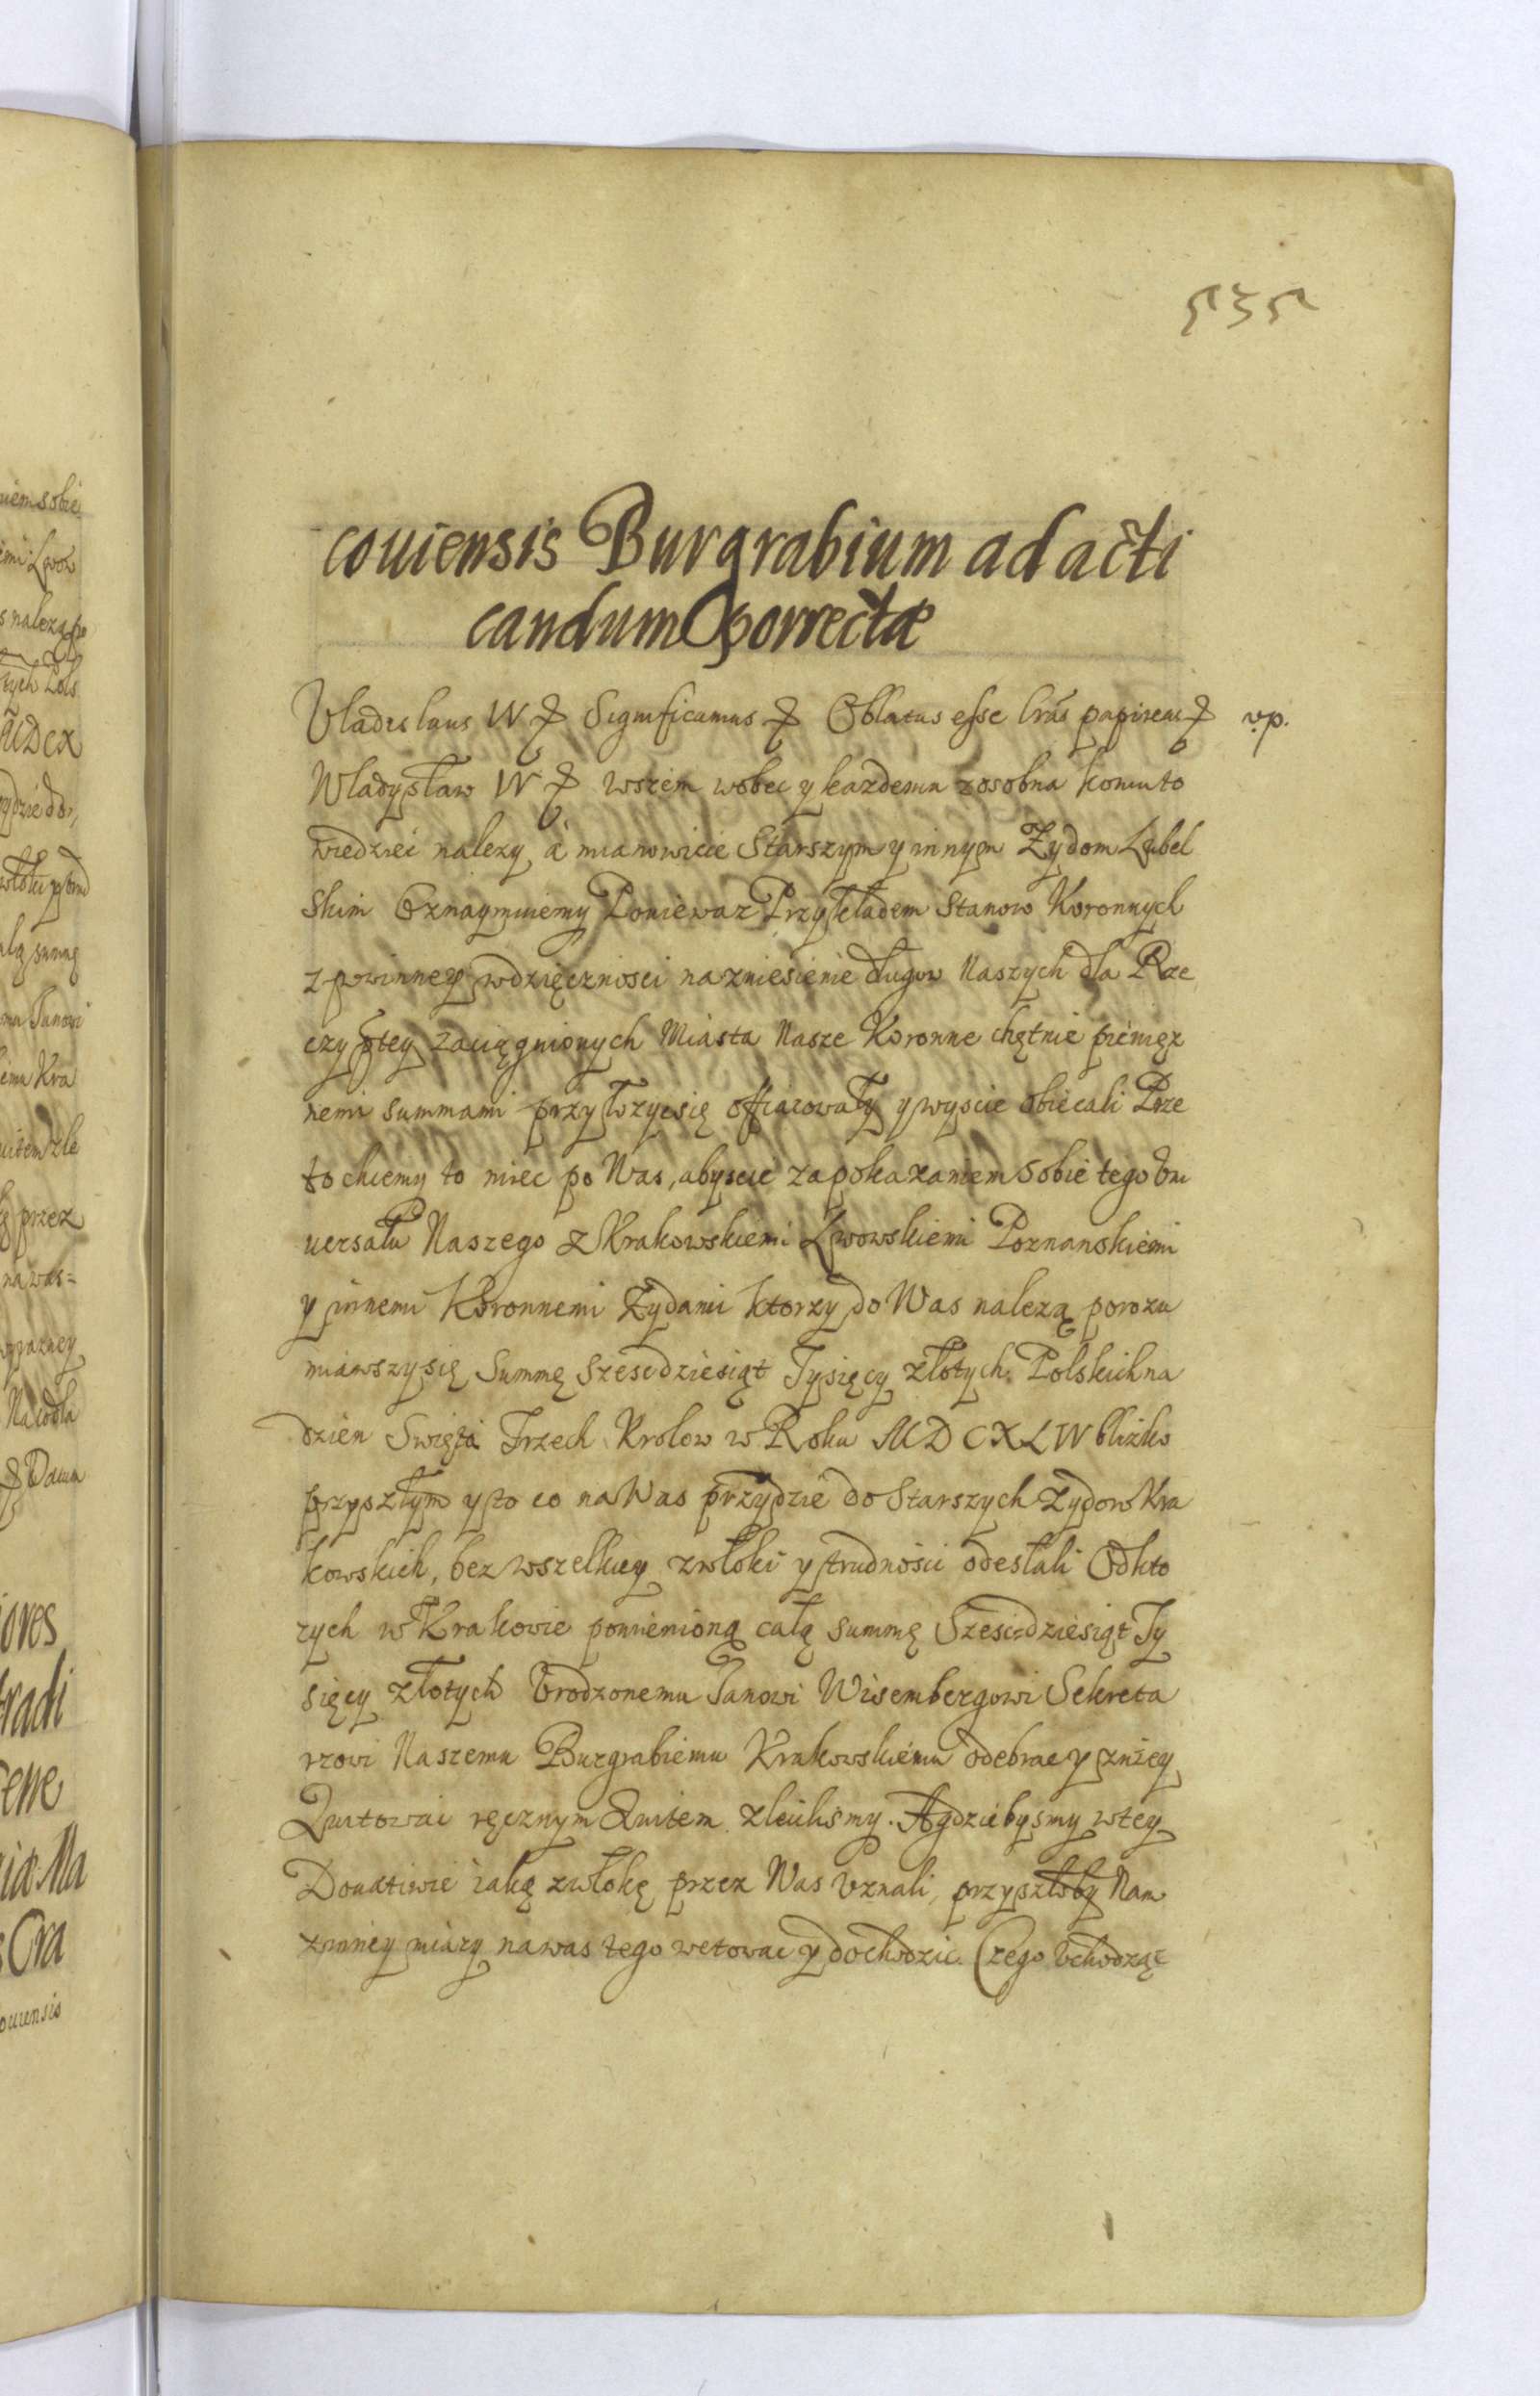 535
coviensis Burgrabium ad acti
candum porrectæ
Vladislaus IV & Significamus & Oblatas esse lras papireas & v.p.
Władysław IV & wszem wobec y kazdemu zosobna komu to
wiedziec nalezy, à mianowicie Starszym y innym Zydom Lubel
skim Oznaymuiemy Poniewaz Przykładem Stanow Koronnych
z powinney wdzięcznosci na zniesienie długow Naszych dla Rze
czyptey zaciągnionych Miasta Nasze Koronne chętnie pienięz
nemi summami przyłozyc się offiarowały y wyscie obiecali Prze
to chcemy to miec po Was, abyscie za pokazaniem sobie tego Vni
uersału Naszego z Krakowskiemi Lwowskiemi Poznanskiemi
y innemi Koronnemi Zydami ktorzy do Was nalezą porozu
miawszy się Summę szescdziesiąt Tysięcy złotych Polskich na
dzien Swięta Trzech Krolow w Roku MDCXLIV blizko
przyszłym y to co na Was przydzie do Starszych Zydow Kra
kowskich, bez wszelkiey zwłoki y trudnosci odesłali Od kto
rych w Krakowie pomienioną całą summę Szesc=dziesiąt Ty
sięcy złotych Vrodzonemu Janowi Wisembergowi Sekreta
rzowi Naszemu Burgrabiemu Krakowskiemu odebrac y zniey
Quitowac ręcznym Quitem zlecilismy. A gdziebysmy w tey
Donatiwie iaką zwłokę przez Was Vznali, przyszłoby Nam
z inney miary na was tego wetowac y dochodzic. Czego Vchodząc
niem sobie
emi Lwow
s nalezą po
tych Pols
MDCX
ydzie do
ą summę
mu Janowi
emu Kra
uitem zle
przez
na was=
Datum
ores
tradi
Cra
ouiensis